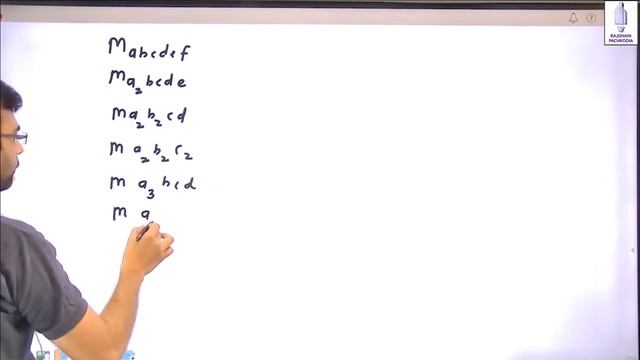 Mabcdef
Ma₂bcde
Ma₂b₂cd
M a₂b₂c₂
M a₃bcd
M a
RAJDHANI
PACHKODIA